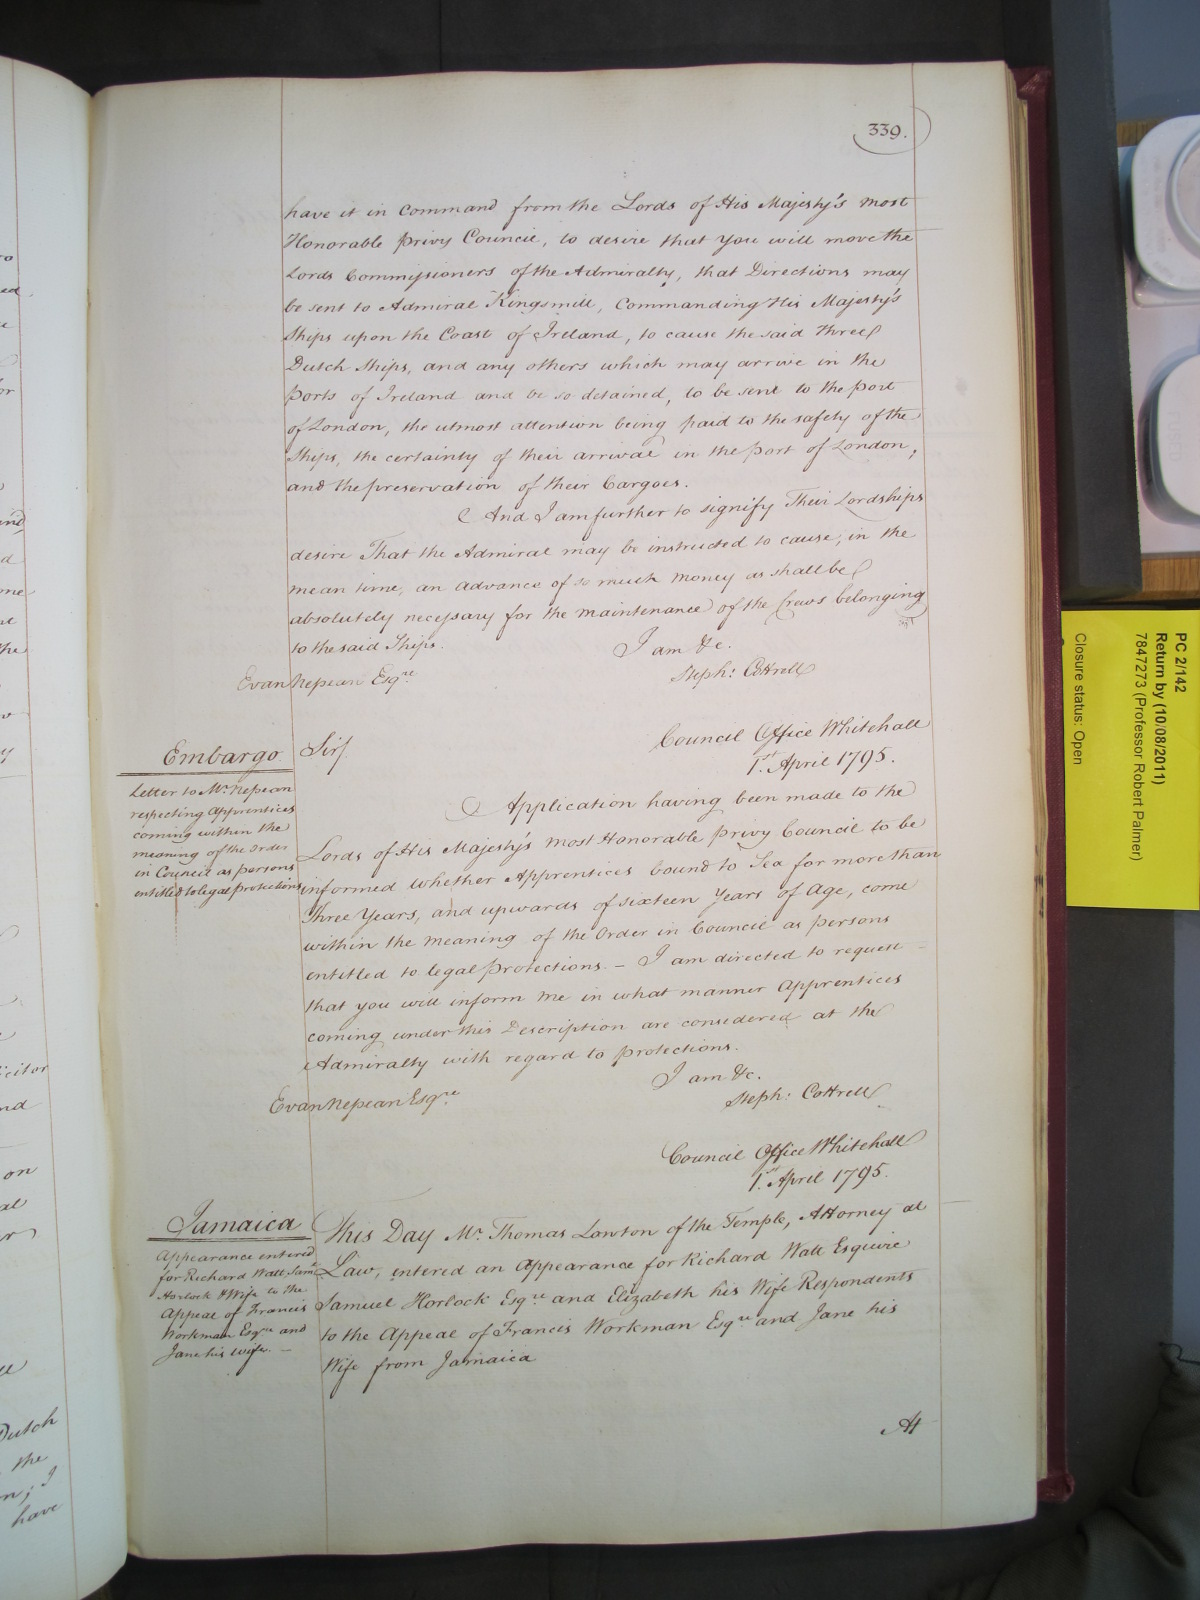 339.
have it in Command from the Lords of His Majesty's most
Honorable Privy Council, to desire that you will move the
Lords Commissioners of the Admiralty, that Directions may
be sent to Admiral Kingsmill, Commanding His Majesty's
Ships upon the Coast of Ireland, to cause the said three
Dutch Ships, and any others which may arrive in the
Ports of Ireland and be so detained, to be sent to the Port
of London, the utmost attention being paid to the safety of the
Ships, the certainty of their arrival in the Port of London,
and the preservation of their Cargoes.
And I am further to signify Their Lordships
desire That the Admiral may be instructed to cause, in the
mean time, an advance of so much Money as shall be
absolutely necessary for the maintenance of the Crews belonging
to the said Ships.
I am &c.
Steph: Cottrell
Evan Nepean Esqre
Council Office Whitehall
1st April 1795.
Embargo.
Letter to Mr. Nepean
respecting Apprentices
coming within the
meaning of the Order
in Council as persons
entitled to legal protections
Sir/
Application having been made to the
Lords of His Majesty's most Honorable Privy Council to be
informed whether Apprentices bound to Sea for more than
Three Years, and upwards of sixteen Years of Age, come
within the meaning of the Order in Council as persons
entitled to legal protections. – I am directed to request
that you will inform me in what manner Apprentices
coming under this Description are considered at the
Admiralty with regard to protections.
I am &c.
Steph: Cottrell
Evan Nepean Esqre
Council Office Whitehall
1st April 1795.
Jamaica
Appearance entered
for Richard Watt Saml
Horlock & Wife to the
Appeal of Francis
Workman Esqre and
Jane his wife. –
This Day Mr. Thomas Lawton of the Temple, Attorney at
Law, entered an Appearance for Richard Watt Esquire
Samuel Horlock Esqre and Elizabeth his Wife Respondents
to the Appeal of Francis Workman Esqre and Jane his
Wife from Jamaica
At
PC 2/142
Return by (10/08/2011)
7847273 (Professor Robert Palmer)
Closure status: Open
icitor
nd
on
Dutch
the
have